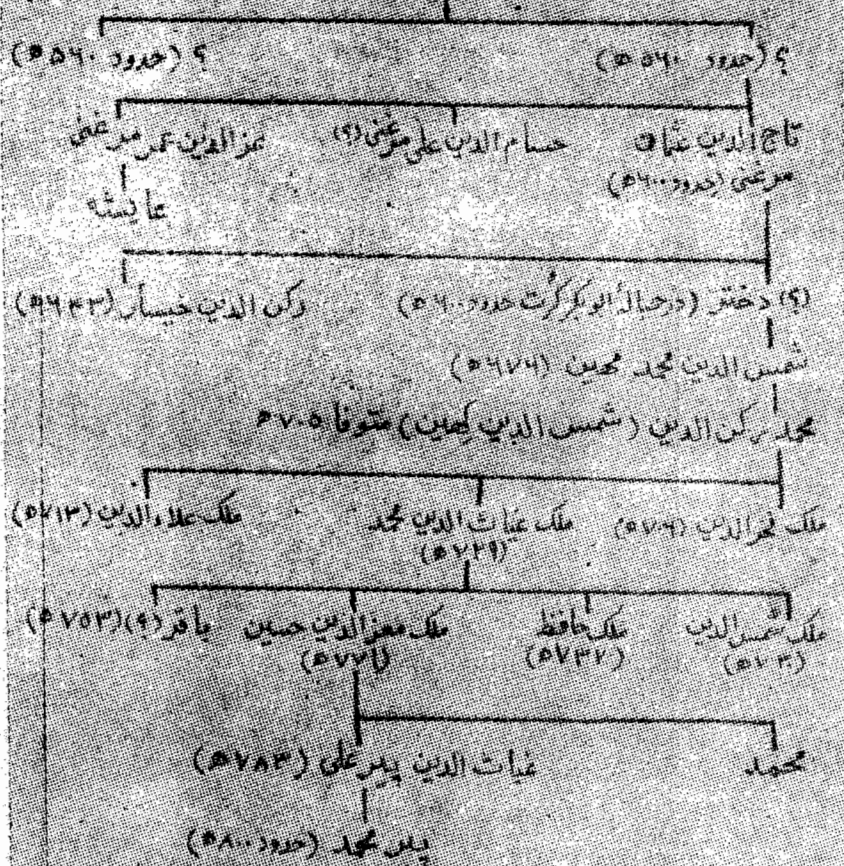 ؟ (حدود ۵۶۰ ه) ؟ (حدود ۵۶۰ ه)
تاج الدین عثمان حسام الدین علی مرغنی (؟) عزالدین عمر مرغنی
مرغنی (حدود ۶۰۰ ه)
عایشه
(؟) دختر (در حبالهٔ ابوبکر کرت حدود ۶۰۰ ه) رکن الدین خیسار (۶۴۳ ه)
شمس الدین محمد مهین (۶۷۶ ه)
محمد رکن الدین (شمس الدین کهین) متوفا ۷۰۵ ه
ملک فخرالدین (۷۰۶ ه) ملک غیاث الدین محمد ملک علاء الدین (۷۱۳ ه)
(۷۲۹ ه)
ملک شمس الدین ملک حافظ ملک معزالدین حسین باقر (؟) (۷۵۳ ه)
(۷۳۰ ه) (۷۳۲ ه) (۷۷۱ ه)
محمد غیاث الدین پیر علی (۷۸۳ ه)
پیر محمد (حدود ۸۰۰ ه)